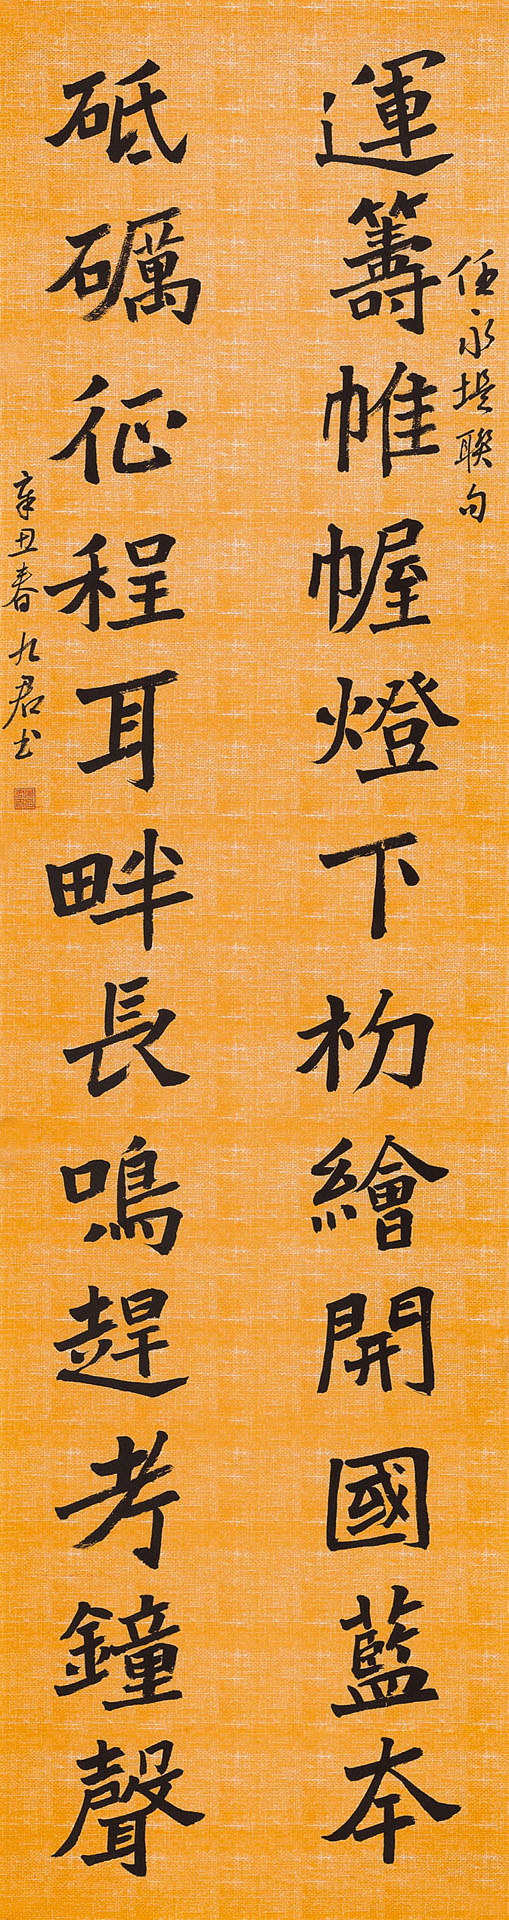 任永堤聯句
運籌帷幄燈下初繪開國藍本
砥礪征程耳畔長鳴趕考鐘聲
辛丑春九君书